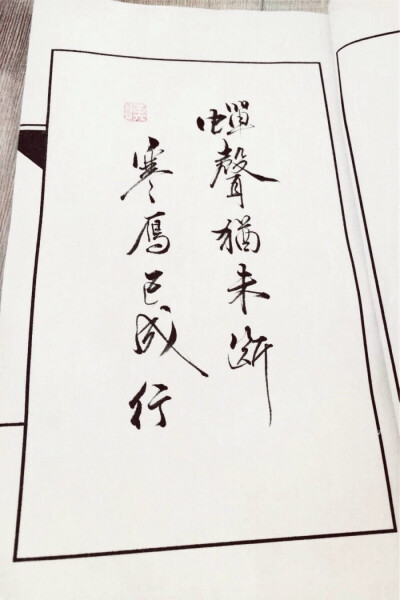 蟬聲猶未斷
寒鴈已成行